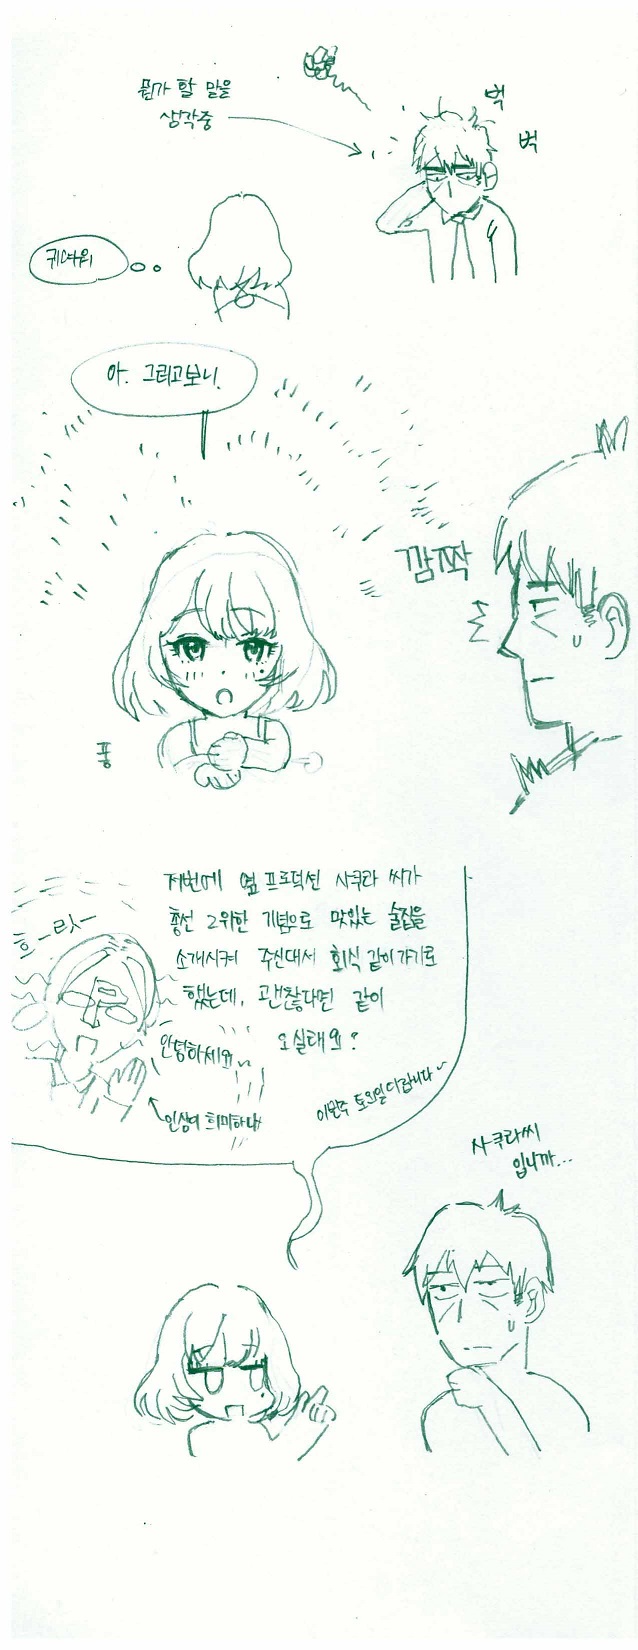 뭔가 할 말을
생각중
벅
벅
귀여워
아. 그러고보니.
깜짝
퐁
저번에 옆 프로덕션 사쿠라 씨가
총선 2위한 기념으로 맛있는 술집을
소개시켜 주신대서 회식 같이 가기로
했는데, 괜찮다면 같이
오실래요?
이번주 토요일이랍니다~
흐-릿-
안녕하세요
인상이 희미하다
사쿠라씨
입니까...